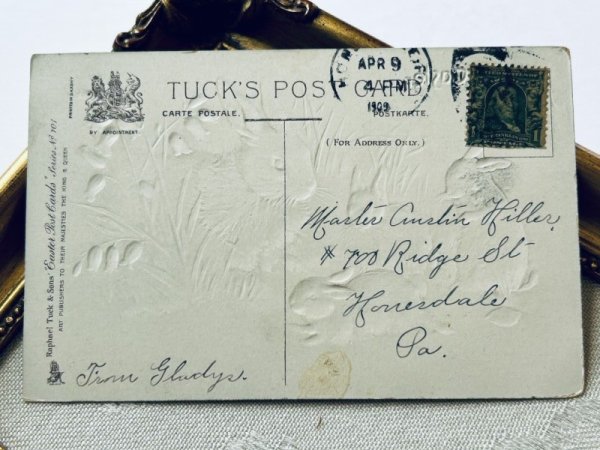 TUCK'S POST CARD
CARTE POSTALE.
POSTKARTE.
(FOR ADDRESS ONLY.)
BY APPOINTMENT.
Raphael Tuck & Sons' "Easter Post Cards" Series No 101
ART PUBLISHERS TO THEIR MAJESTIES THE KING & QUEEN
APR 9
4 PM
1909
Master Austin Hiller,
# 700 Ridge St
Honesdale
Pa.
From Gladys.